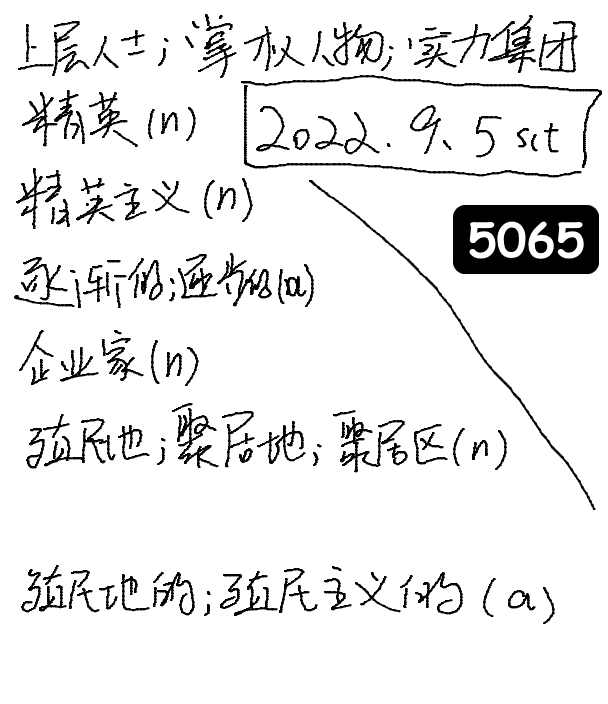 上层人士;掌权人物;实力集团
精英(n)
2022.9.5 sct
精英主义(n)
5065
逐渐的;逐步的(a)
企业家(n)
殖民地;聚居地;聚居区(n)
殖民地的;殖民主义的(a)